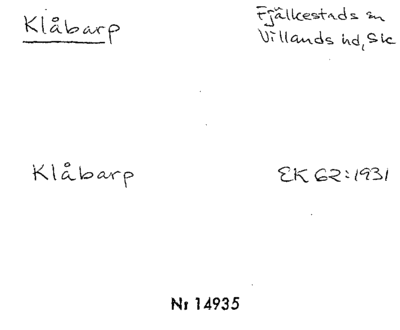 Klåbarp
Fjälkestads sn
Villands hd, Sk
Klåbarp
EK 62:1931
Nr 14935